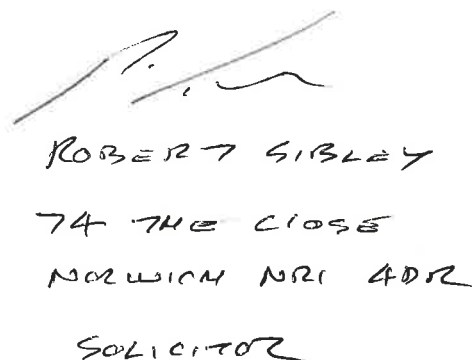 ROBERT SIBLEY
74 THE CLOSE
NORWICH NR1 4DR
SOLICITOR